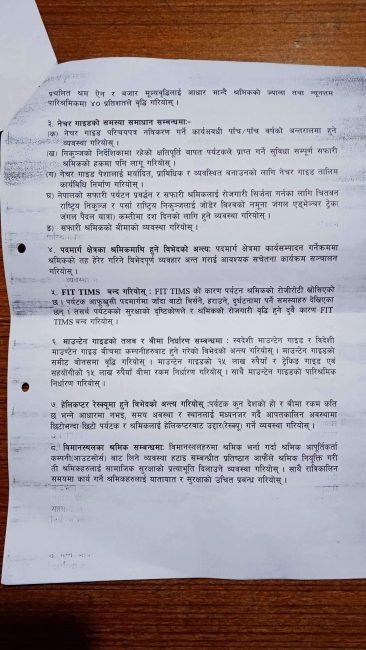 प्रचलित श्रम ऐन र बजार मूल्यवृद्धिलाई आधार मान्दै श्रमिकको ज्याला तथा न्यूनतम
पारिश्रमिकमा ४० प्रतिशतले वृद्धि गरियोस् ।
३. नेचर गाइडको समस्या समाधान सम्बन्धमाः-
(क) नेचर गाइड परिचयपत्र नविकरण गर्ने कार्यअवधी पाँच/पाँच वर्षको अन्तरालमा हुने
व्यवस्था गरियोस् ।
(ख) निकुञ्जको निर्देशिकामा रहेको क्षतिपूर्ति वापत पर्यटकले प्राप्त गर्ने सुविधा सम्पूर्ण सफारी
श्रमिकको हकमा पनि लागू गरियोस् ।
(ग) नेचर गाइड पेशालाई मर्यादित, प्राविधिक र व्यवस्थित बनाउनको लागि नेचर गाइड तालिम
कार्यबिधि निर्माण गरियोस् ।
(घ) नेपालको सफारी पर्यटन प्रवर्द्धन र सफारी श्रमिकलाई रोजगारी सिर्जना गर्नका लागि चितवन
राष्ट्रिय निकुञ्ज र पर्सा राष्ट्रिय निकुञ्जलाई जोडेर विश्वको नमूना जंगल एड्भेञ्चर ट्रेक।
जंगल पैदल यात्रा) कम्तीमा दश दिनको लागि हुने व्यवस्था गरियोस् ।
(ङ) सफारी श्रमिकको बीमाको व्यवस्था गरियोस् ।
४. पदमार्ग क्षेत्रका श्रमिकमाथि हुने विभेदको अन्त्यः पदमार्ग क्षेत्रमा कार्यसम्पादन गर्नेक्रममा
श्रमिकको तह हेरेर गरिने विभेदपूर्ण व्यवहार अन्त गराई आवश्यक सचेतना कार्यक्रम सञ्चालन
गरियोस् ।
५. FIT TIMS बन्द गरियोस् : FIT TIMS को कारण पर्यटन श्रमिकको रोजीरोटी खोसिएको
छ। पर्यटक आफूखुसी पदमार्गमा जाँदा बाटो बिर्सने, हराउने, दुर्घटनामा पर्ने समस्याहरु देखिएका
छन् । तसर्थ पर्यटकको सुरक्षाको दृष्टिकोणले र श्रमिकको रोजगारी वृद्धि हुने दुवै कारण FIT
TIMS बन्द गरियोस् ।
६. माउन्टेन गाइडको तलव र बीमा निर्धारण सम्बन्धमा : स्वदेशी माउन्टेन गाइड र विदेशी
माउण्टेन गाइड बीचमा कम्पनीहरुवाट हुने गरेको विभेदको अन्त्य गरियोस् । माउन्टेन गाइडको
समीट बोनसमा वृद्धि गरियोस् । माउन्टेन गाइडको २५ लाख रुपैया र ट्रेकिङ गाइड एवं
सहयोगीको १५ लाख रुपैयाँ बीमा रकम निर्धारण गरियोस् । साथै माउन्टेन गाइडको पारिश्रमिक
निर्धारण गरियोस् ।
७ हेलिकप्टर रेस्क्यूमा हुने विभेदको अन्त्य गरियोस् :पर्यटक कुन देशको हो र बीमा रकम कति
छ भन्ने आधारमा नभइ, समय अवस्था र स्थानलाई मध्यनजर गर्दै आपतकालिन अवस्थामा
छिटोभन्दा छिटो पर्यटक र श्रमिकलाई हेलिकप्टरबाट उद्दार(रेस्क्यू) गर्ने व्यवस्था गरियोस् ।
८. विमानस्थलका श्रमिक सम्बन्धमाः विमानस्थलहरुमा श्रमिक भर्ना गर्दा श्रमिक आपूर्तिकर्ता
कम्पनी(आउटसोर्स) बाट लिने व्यवस्था हटाइ सम्बन्धीत प्रतिष्ठान आफैँले श्रमिक नियुक्ति गरी
ती श्रमिकहरुलाई सामाजिक सुरक्षाको प्रत्याभूति दिलाउने व्यवस्था गरियोस् । साथै रात्रिकालिन
समयमा कार्य गर्ने श्रमिकहरुलाई यातायात र सुरक्षाको उचित प्रबन्ध गरियोस् ।